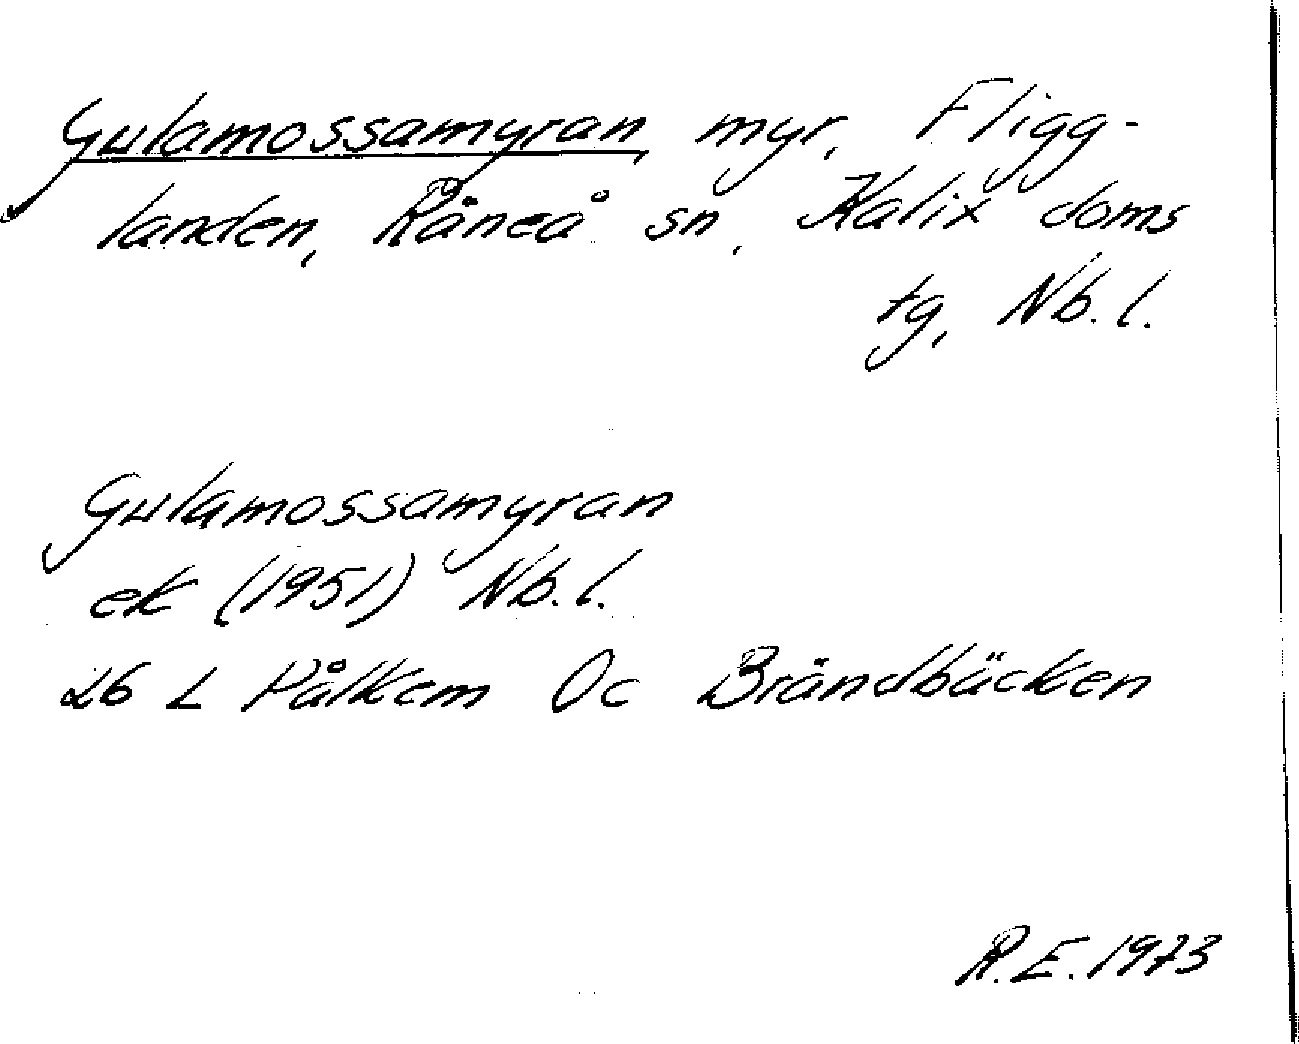 Gulamossamyran, myr, Fligg-
landen, Råneå sn, Kalix doms
tg, Nb. l.
Gulamossamyran
ek (1951) Nb. l.
26 L Pålkem Oc Brändbäcken
R.E. 1973